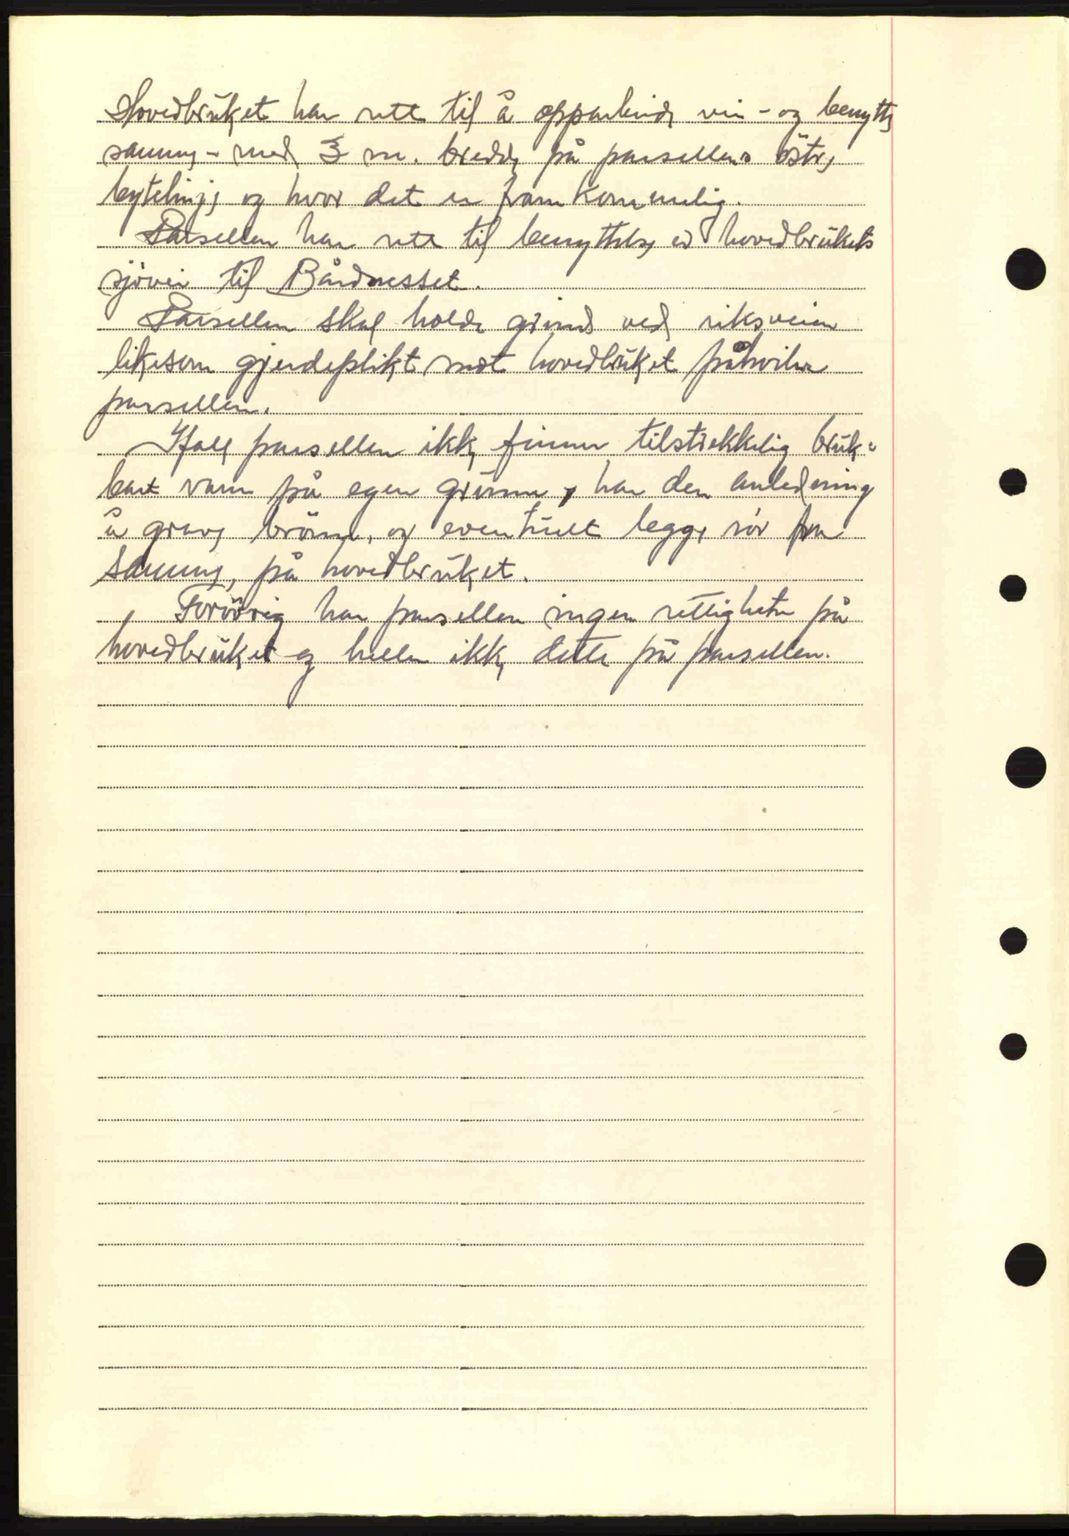 Hovedbruket har rett til å opparbeide vei - og benytte
samme - med 3 m. bredde på parsellens østre
bytelinje og hvor det er framkommelig.
Parsellen har rett til benyttelse av hovedbrukets
sjøvei til Bårdnesset.
Parsellen skal holde grind ved riksveien
likesom gjerdeplikt mot hovedbruket påhviler
parsellen.
Ifall parsellen ikke finner tilstrekkelig bruk-
bart vann på egen grunn, har den anledning
å grave brønn, og eventuelt legge rør fra
samme, på hovedbruket.
Forøvrig har parsellen ingen rettigheter på
hovedbruket og heller ikke dette på parsellen.